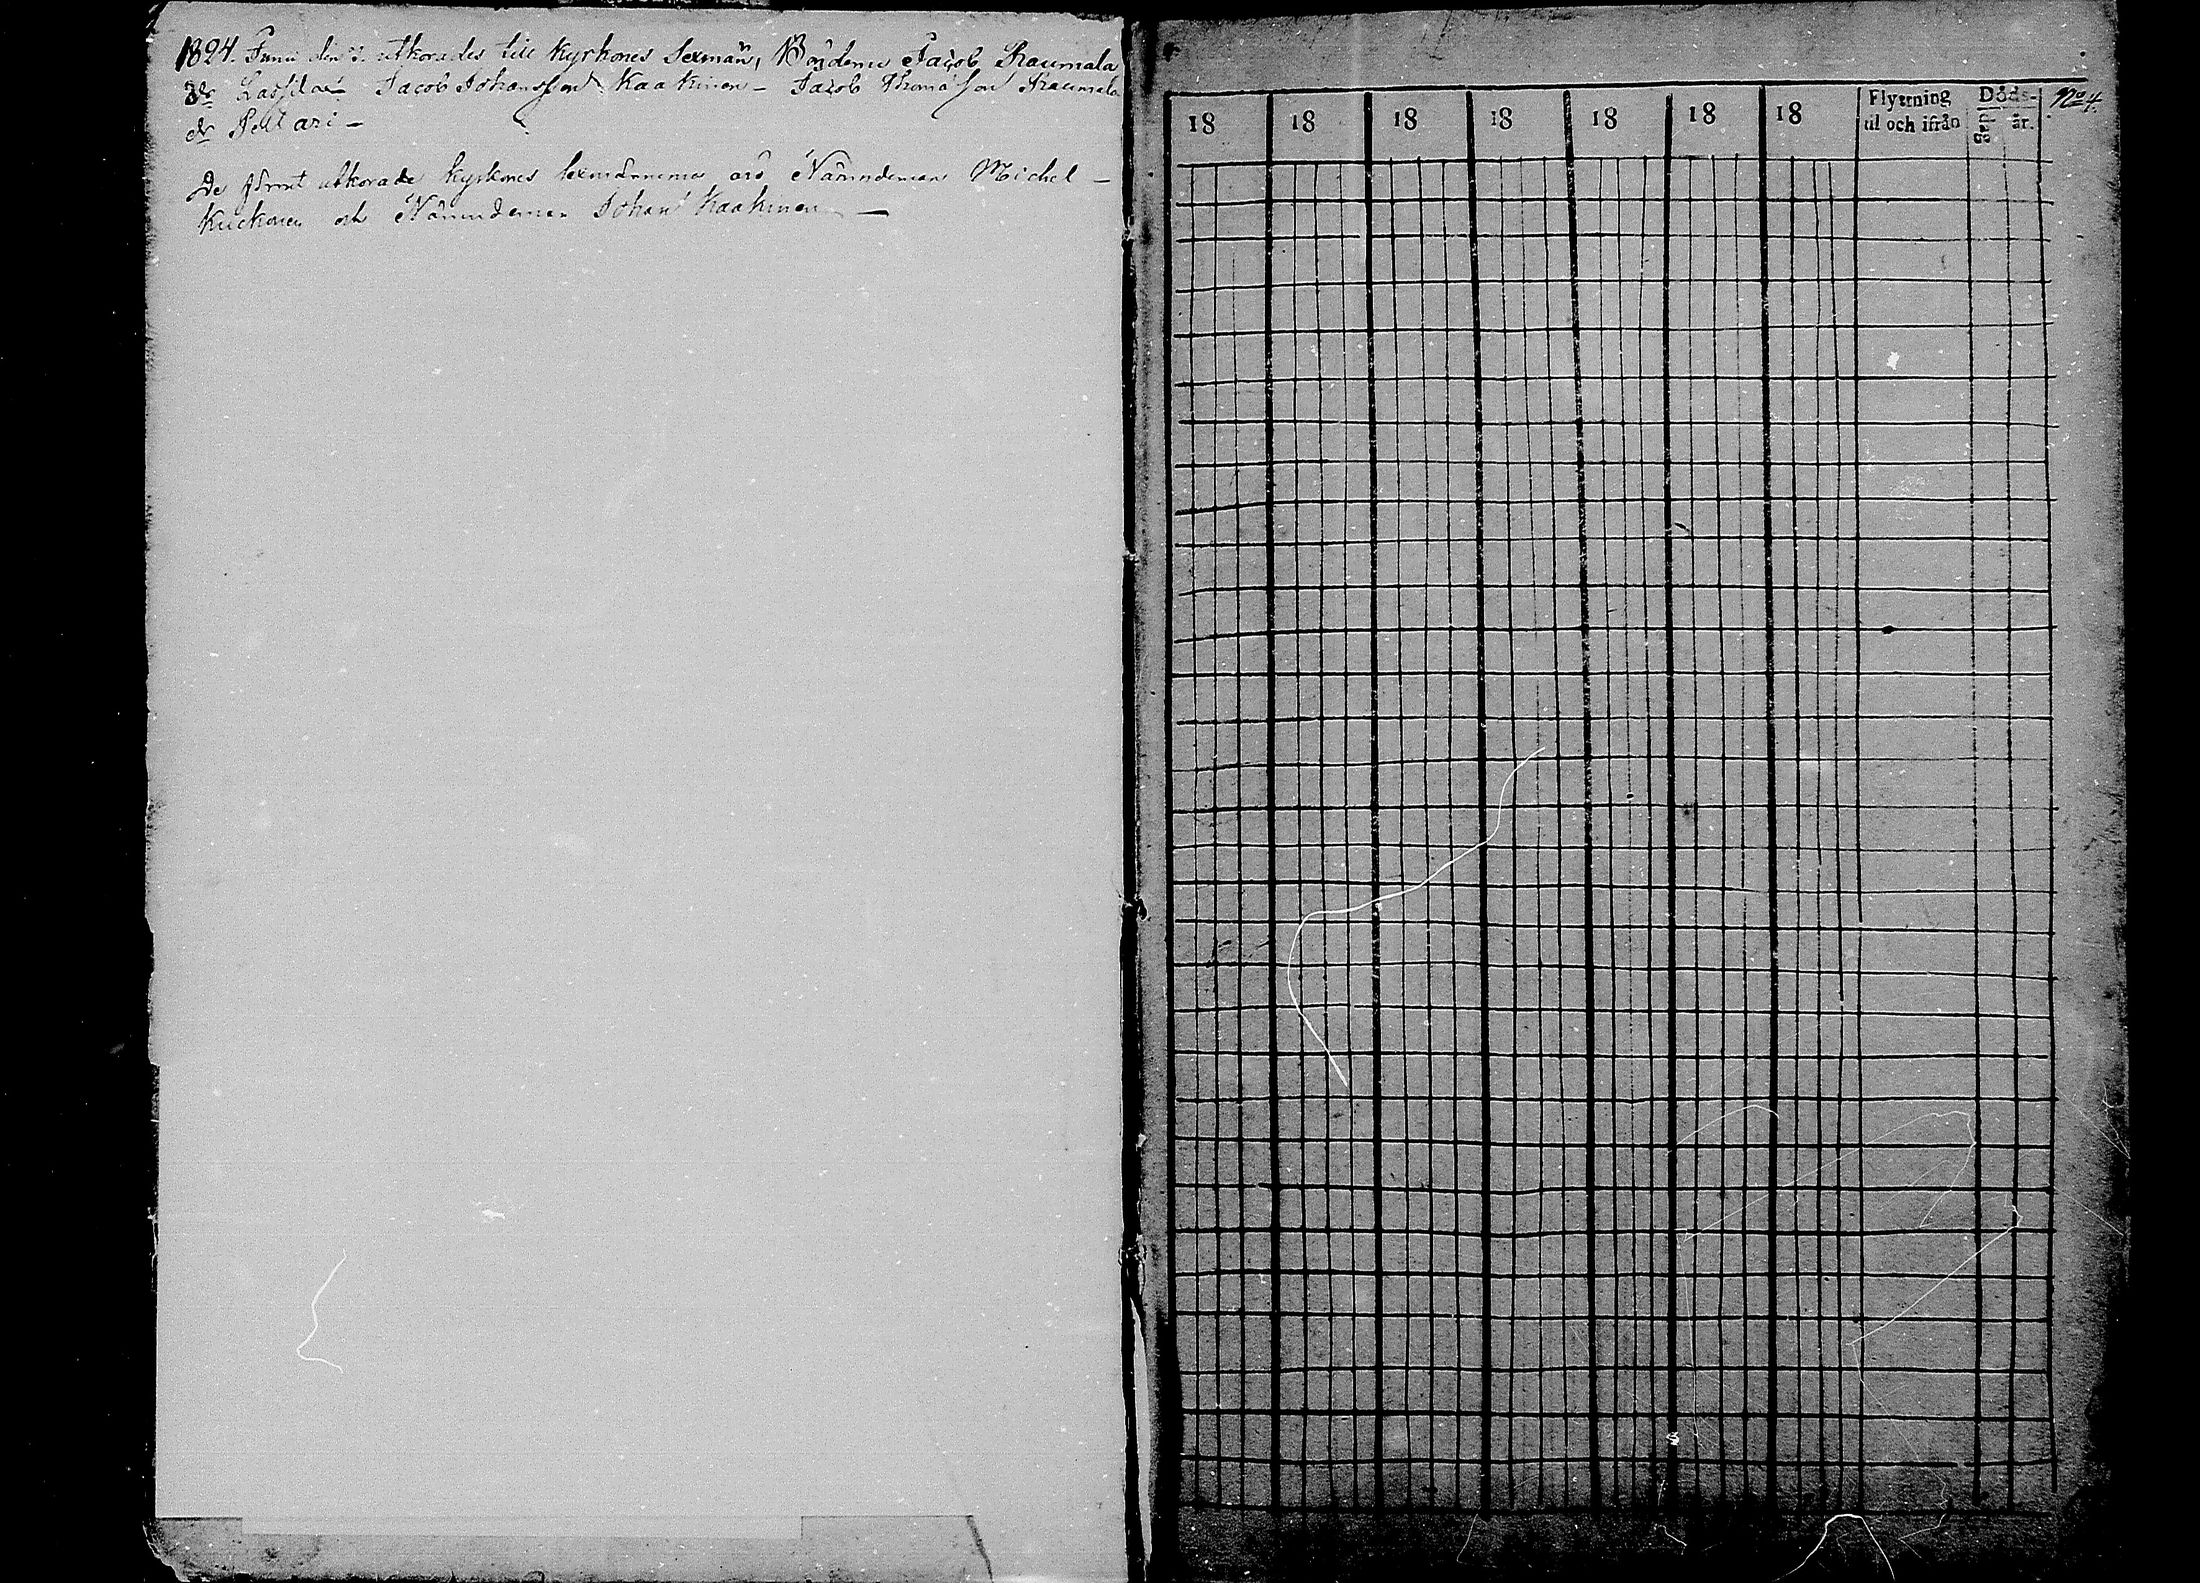 1824. Junii den 3. utkorades till Kyrkones Sexmän, Bönderne Jacob Raumala
Jacob Johansson Kaakinen - Jacob Thomasson Raumala
Peltari -
De förut utkorade kyrkones Sexmännerne äro Nämndeman Michel -
Kuckonen och Nämndeman Johan Kaakinen -
18 18 18 18 18 18 18 Flyttning Döds- No 4.
til och ifrån dag år.